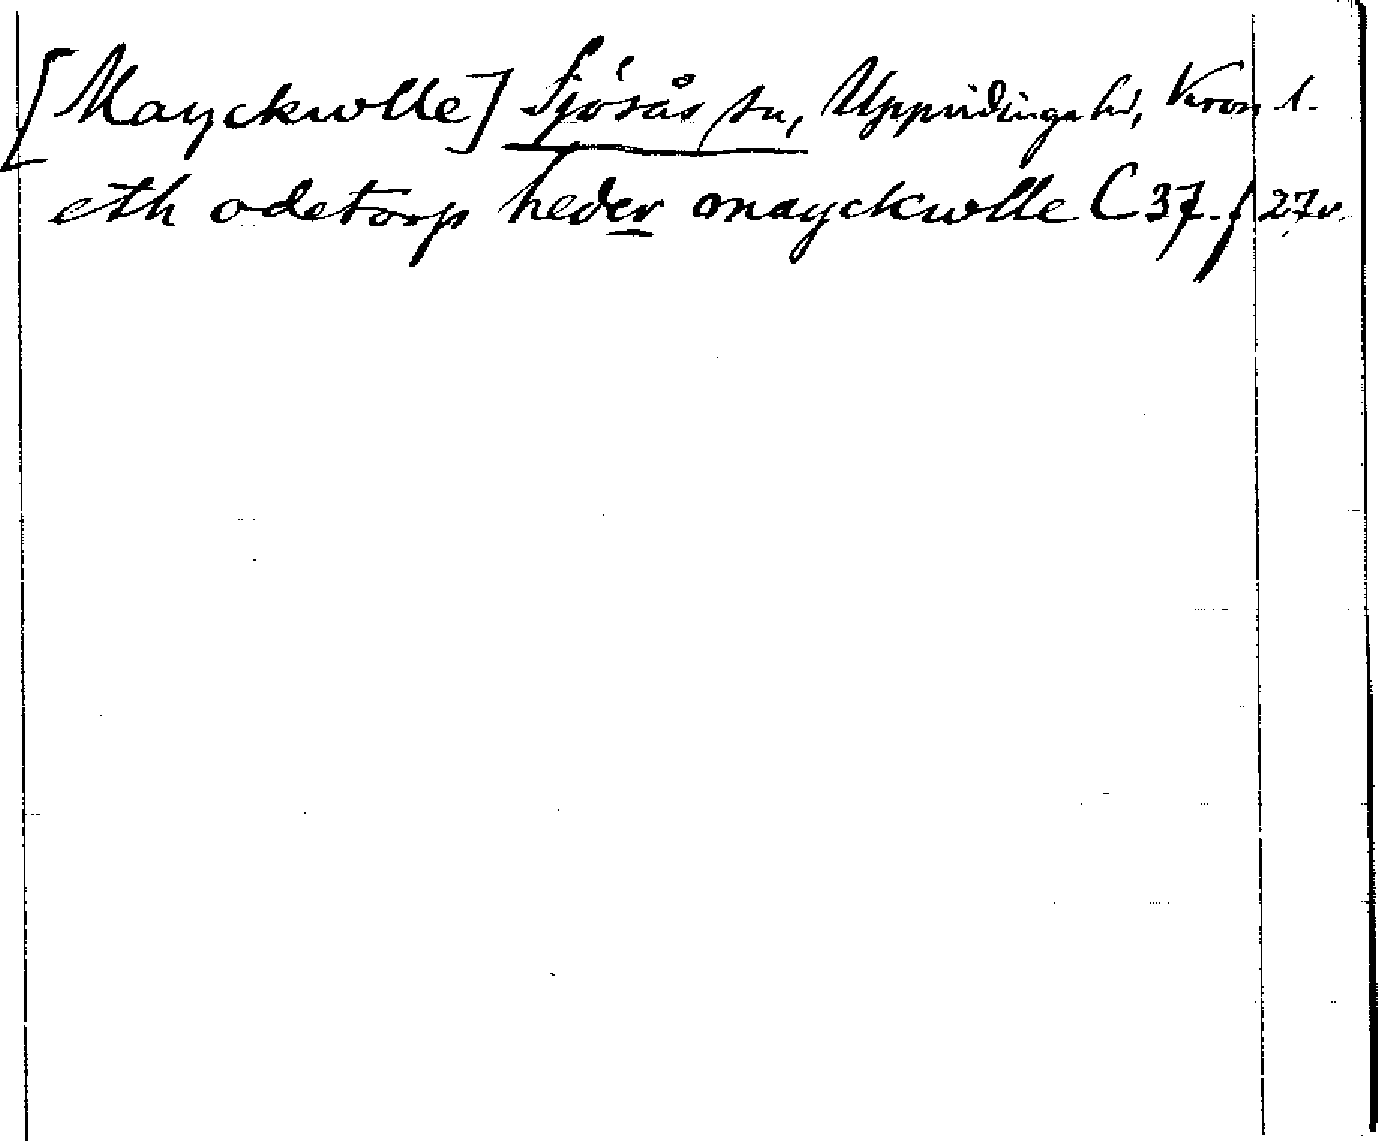 [Mayckwlle] Sjösås sn, Uppvidinge hd, Kron. l.
eth odetorp heder mayckwlle C 37. f 27v.